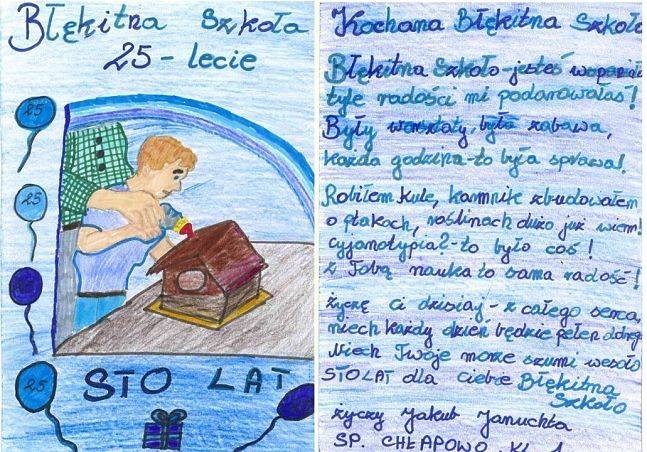 Błękitna Szkoła
25-lecie
25
25
25
25
STO LAT
Kochana Błękitna Szkoło
Błękitna Szkoło-jesteś
tyle radości mi podarowałaś!
Były warsztaty, była zabawa,
każda godzina-to była sprawa!
Robiłem kule, karmnik zbudowałem
o ptakach, roślinach dużo już wiem!
cyjanotypia?-to było coś!
z Tobą nauka to sama radość!
życzę ci dzisiaj-z całego serca,
niech każdy dzień będzie pełen
Niech Twoje morze szumi wesoło
STO LAT dla ciebie Błękitna
Szkoło
życzy Jakub Januchta
SP. CHŁAPOWO KL